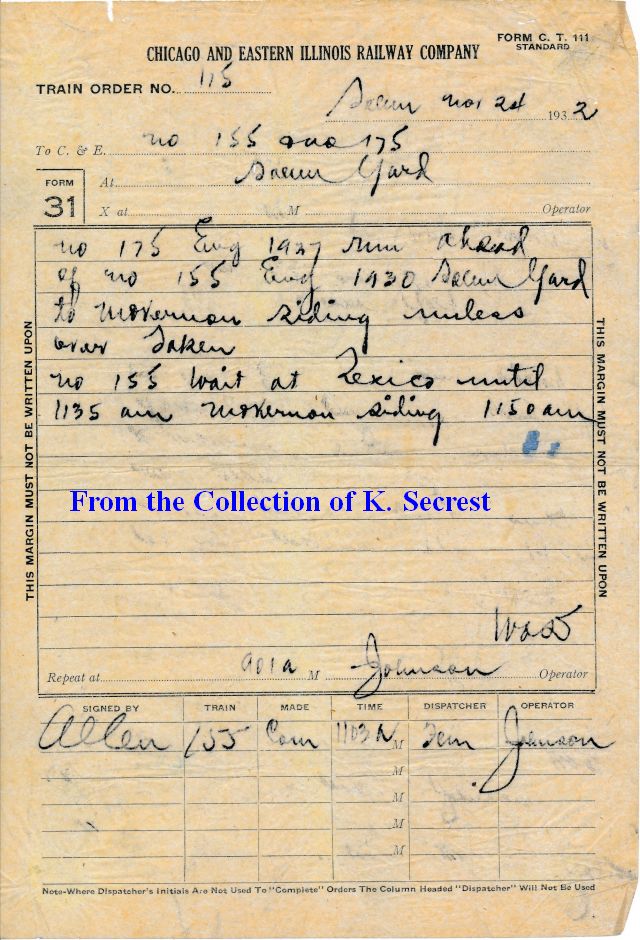 FORM C. T. 111
STANDARD
CHICAGO AND EASTERN ILLINOIS RAILWAY COMPANY
TRAIN ORDER NO. 115
Salem Nov 24 1932
To C. & E. no 155 and 175
FORM 31
At Salem Yard
X at M Operator
no 175 Eng 1927 run ahead
of no 155 Eng 1930 Salem Yard
to McKernon siding unless
over taken
no 155 wait at Texico until
1135 am McKernon siding 1150 am
THIS MARGIN MUST NOT BE WRITTEN UPON
THIS MARGIN MUST NOT BE WRITTEN UPON
From the Collection of K. Secrest
Repeat at 901 a M Johnson Operator
SIGNED BY TRAIN MADE TIME DISPATCHER OPERATOR
Allen 155 Com 1103 A M Johnson
M
M
M
M
Note-Where Dispatcher's Initials Are Not Used To "Complete" Orders The Column Headed "Dispatcher" Will Not Be Used